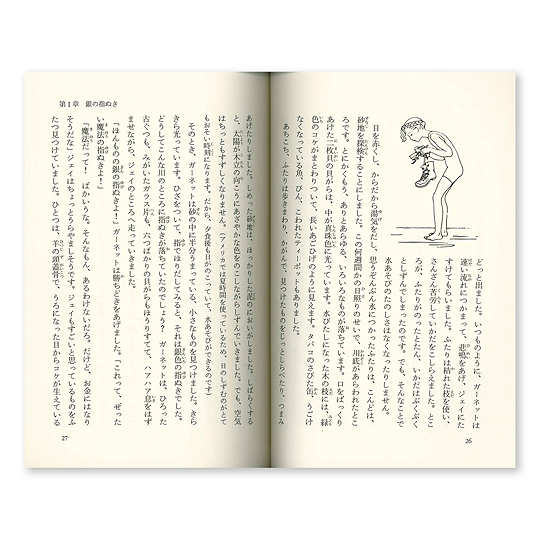 どっと出ました。いつものように、ガーネットは
速い流れにつかまって、悲鳴をあげ、ジェイにた
すけてもらいました。ふたりは枯れた枝を使い、
さんざん苦労していかだをこしらえました。とこ
ろが、ふたりがのったとたん、いかだはぶくぶく
としずんでしまったのです。でも、そんなことで
水あそびのたのしさはなくなったりしません。
目を赤くし、からだから湯気をだし、思うぞんぶん水につかったふたりは、こんどは、
砂地を探検することにしました。この何週間かの日照りのせいで、川底があらわれたとこ
ろです。とにかくもう、ありとあらゆる、いろいろなものが落ちています。口をぱっくり
あけた二枚貝の貝がらは、中が真珠色に光っています。水びたしになった木の枝には、緑
色のコケがまとわりついて、長いあごひげのように見えます。タバコのさびた缶、うごけ
なくなっている魚、びん、こわれたティーポットもありました。
あちこち、ふたりは歩きまわり、かがんで、見つけたものをじっとしらべたり、つまみ
26
第1章 銀の指ぬき
あげたりしました。しめった砂地は、ほっかりした泥のにおいがしました。しばらくする
と、太陽が木立の向こうにあざやかな色をのこしながらしずんでいきました。でも、空気
はちっともすずしくなりません。(アメリカでは夏時間を使っているため、日のしずむのがとて
もおそい時刻になります。だから、夕食後も日がのこっていて、水あそびができるのです)
そのとき、ガーネットは砂の中に半分うまっている、小さなものを見つけました。きら
きら光っています。ひざをついて、指でほりだしてみると、それは銀色の指ぬきでした。
どうしてこんな川のところに指ぬきが落ちていたのでしょう? ガーネットは、ひろった
古ぐつも、みがいたガラス片も、六つばかりの貝がらもほうりすてて、ハアハア息をはず
ませながら、ジェイのところへ走っていきました。
「ほんものの銀の指ぬきよ!」ガーネットは勝ちどきをあげました。「これって、ぜった
い魔法の指ぬきよ!」
「魔法だって! ばかいうな。そんなもん、あるわけないだろ。だけど、お金にはなり
そうだな」ジェイはちょっとうらやましそうです。ジェイもすごいと思っているものをふ
たつ見つけていました。ひとつは、羊の頭蓋骨で、うろになった目からコケが生えている
27